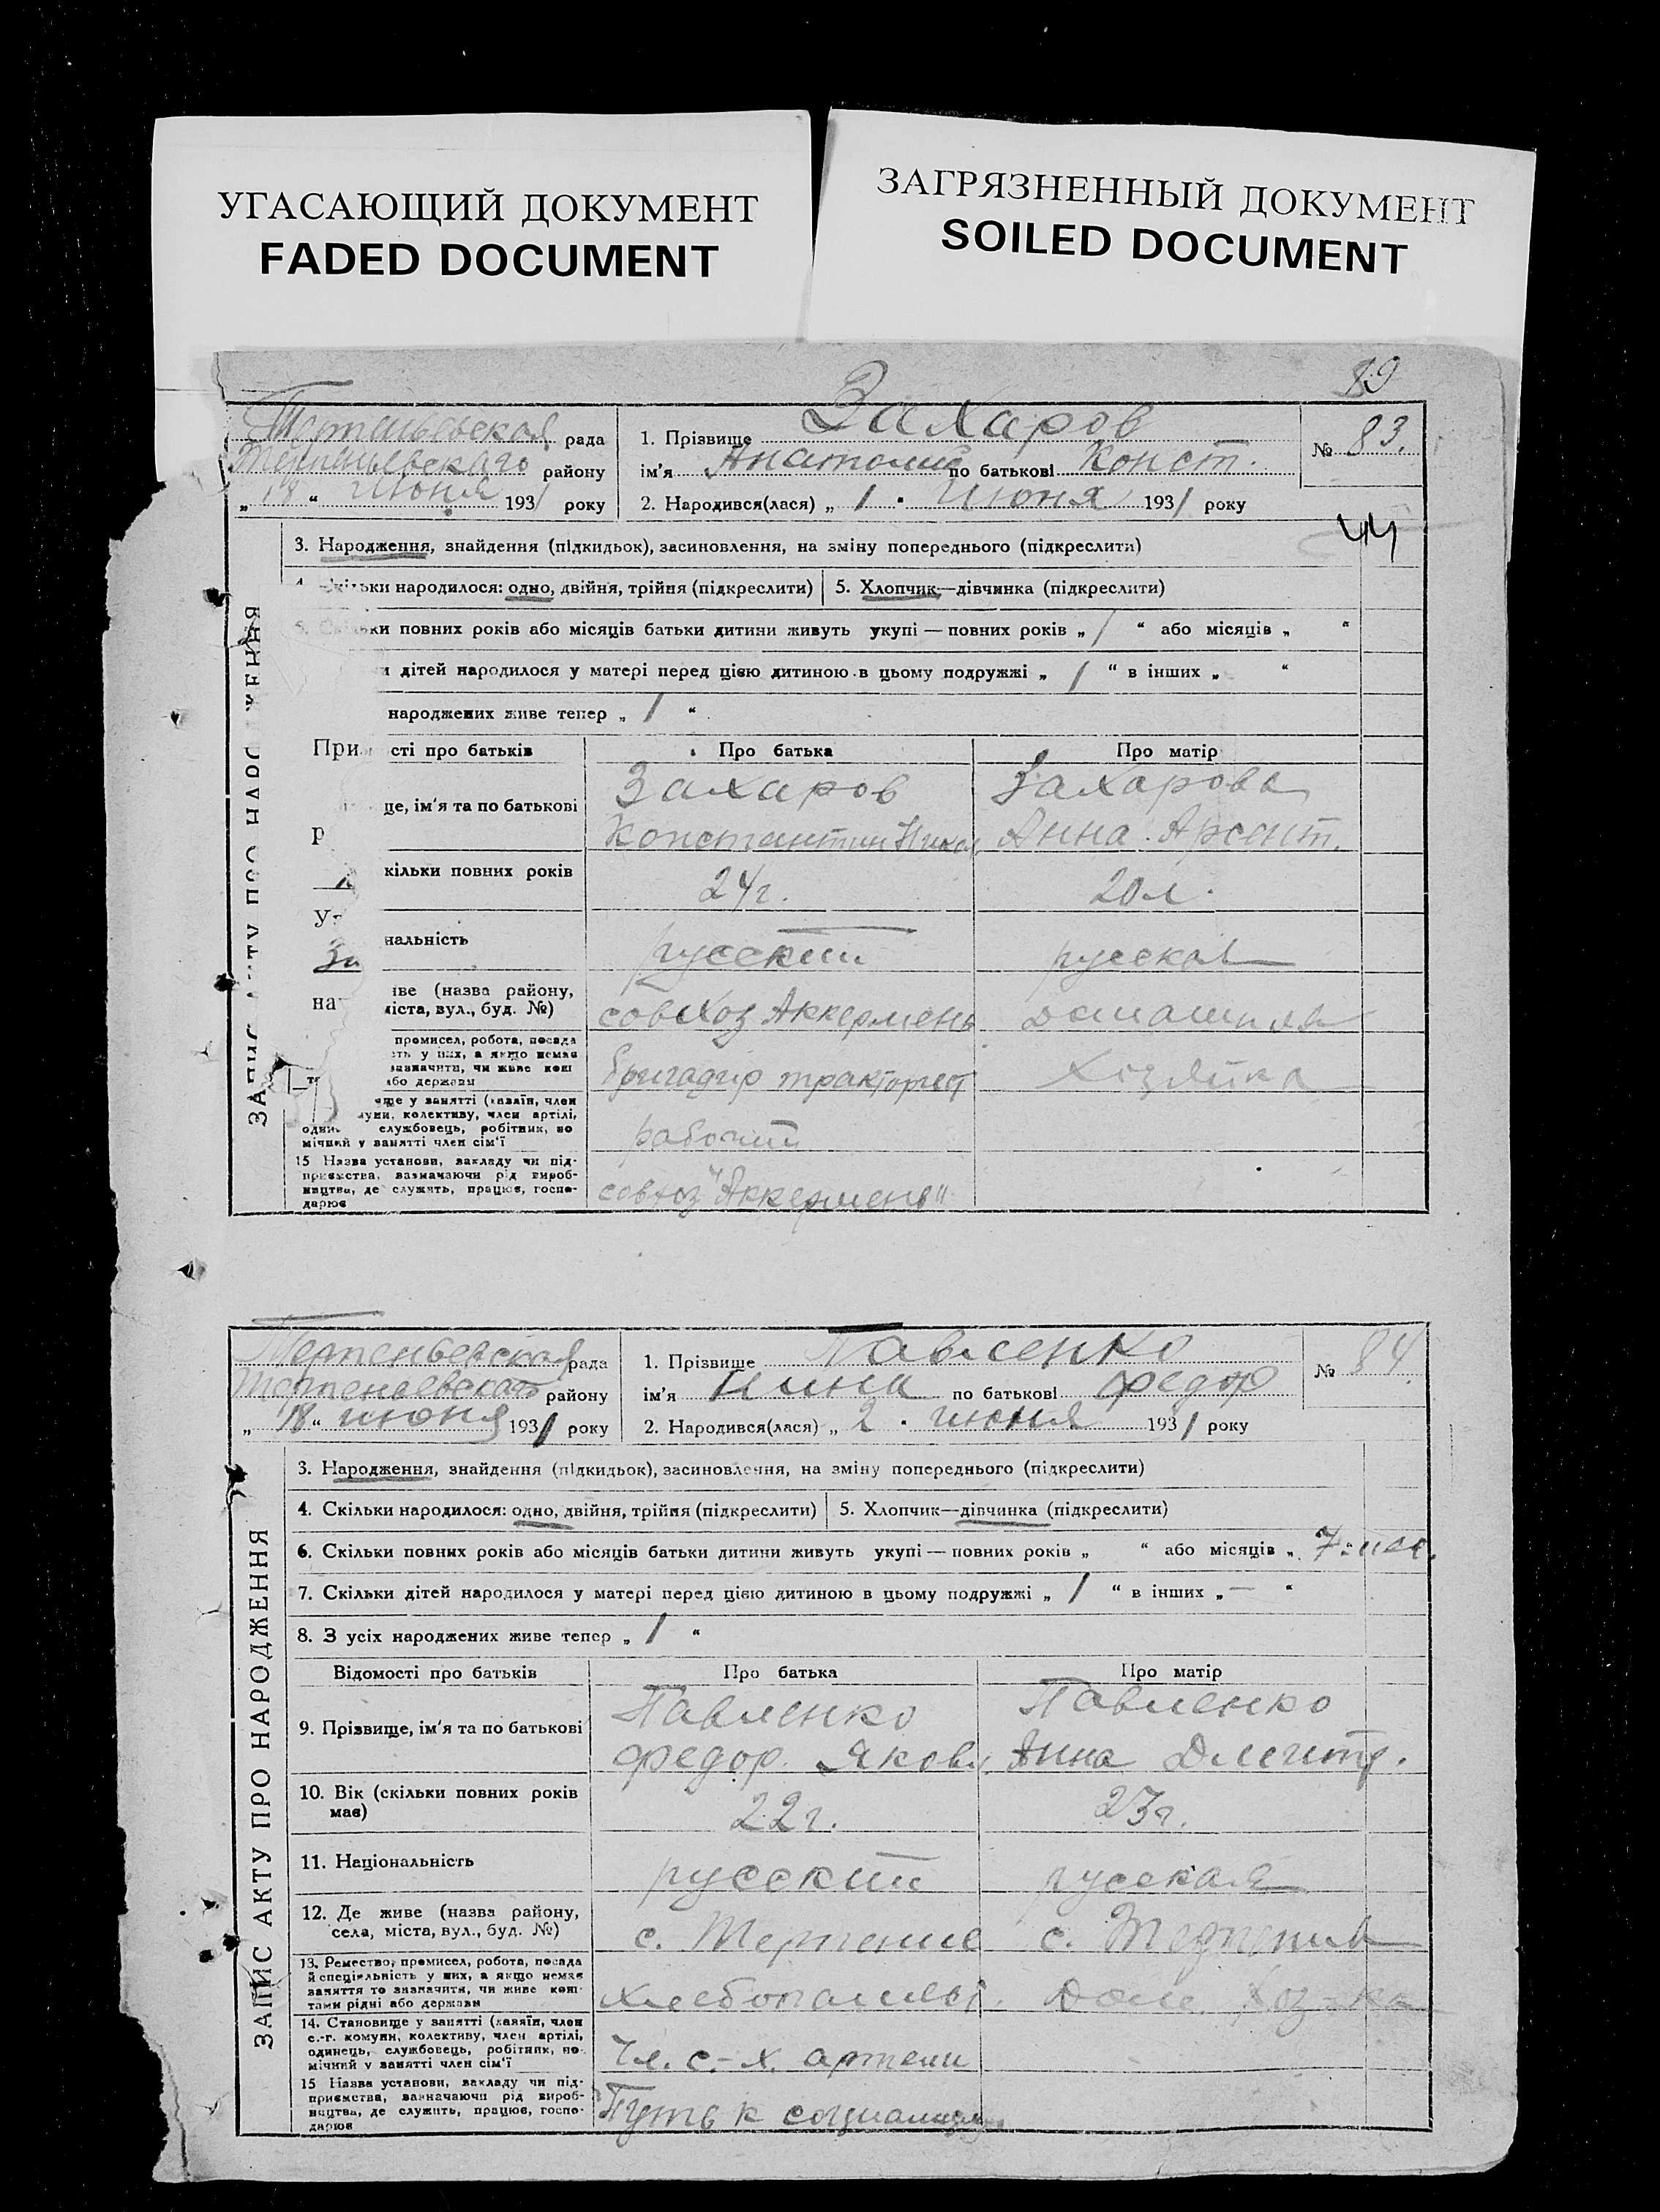 УГАСАЮЩИЙ ДОКУМЕНТ
FADED DOCUMENT
ЗАГРЯЗНЕННЫЙ ДОКУМЕНТ
SOILED DOCUMENT
89
Терпеньевская рада
Терпеньевскаго району
„ 18 “ июня 1931 року
1. Прізвище Захаров
ім'я Анатолий по батькові Конст.
2. Народився(лася) „ 1 " июня 1931 року
№ 83.
44
3. Народження, знайдення (підкидьок), засиновлення, на зміну попереднього (підкреслити)
народилося: одно, двійня, трійня (підкреслити) 5. Хлопчик—дівчинка (підкреслити)
повних років або місяців батьки дитини живуть укупі — повних років „ / “ або місяців „ “
дітей народилося у матері перед цією дитиною в цьому подружжі „ / “ в інших „ “
народжених живе тепер „ / “
про батьків Про батька Про матір
Захаров Захарова
ім'я та по батькові
Константин Никол. Анна Арсент.
повних років 24г. 20л.
русский русская
(назва району,
вул., буд. №)
совхоз Аккермень домашняя
промисел, робота, посада
у них, а якщо немає
або держави
бригадир тракторист хозяйка
у занятті (хазяїн, член
колективу, член артілі,
службовець, робітник, по
мічний у занятті член сім'ї
рабочий
15 Назва установи, закладу чи під-
приємства, зазначаючи рід вироб-
ництва, де служить, працює, госпо-
дарює
совхоз "Аккермень"
Терпеньевская рада
Терпеньевскаго району
„ 18 “ июня 1931 року
1. Прізвище Павленко
ім'я Нина по батькові Федор
2. Народився(лася) „ 2 " июня 1931 року
№ 84.
ЗАПИС АКТУ ПРО НАРОДЖЕННЯ
3. Народження, знайдення (підкидьок), засиновлення, на зміну попереднього (підкреслити)
4. Скільки народилося: одно, двійня, трійня (підкреслити) 5. Хлопчик—дівчинка (підкреслити)
6. Скільки повних років або місяців батьки дитини живуть укупі — повних років „ “ або місяців „ 7 мес.
7. Скільки дітей народилося у матері перед цією дитиною в цьому подружжі „ / “ в інших „ — “
8. З усіх народжених живе тепер „ / “
Відомості про батьків Про батька Про матір
Павленко Павленко
9. Прізвище, ім'я та по батькові
Федор Яковл. Анна Дмитр.
10. Вік (скільки повних років
має)
22г. 23г.
11. Національність русский русская
12. Де живе (назва району,
села, міста, вул., буд. №)
с. Терпение с. Терпения
13. Ремество, промисел, робота, посада
й спеціяльність у них, а якщо немає
заняття то зазначити, чи живе кош-
тами рідні або держави
хлебопашест. Дом. хоз-ка
14. Становище у занятті (хазяїн, член
с.-г. комуни, колективу, член артілі,
одинець, службовець, робітник, по-
мічний у занятті член сім'ї
Чл. с.-х. артели
15 Назва установи, закладу чи під-
приємства, зазначаючи рід вироб-
ництва, де служить, працює, госпо-
дарює
Путь к социализму